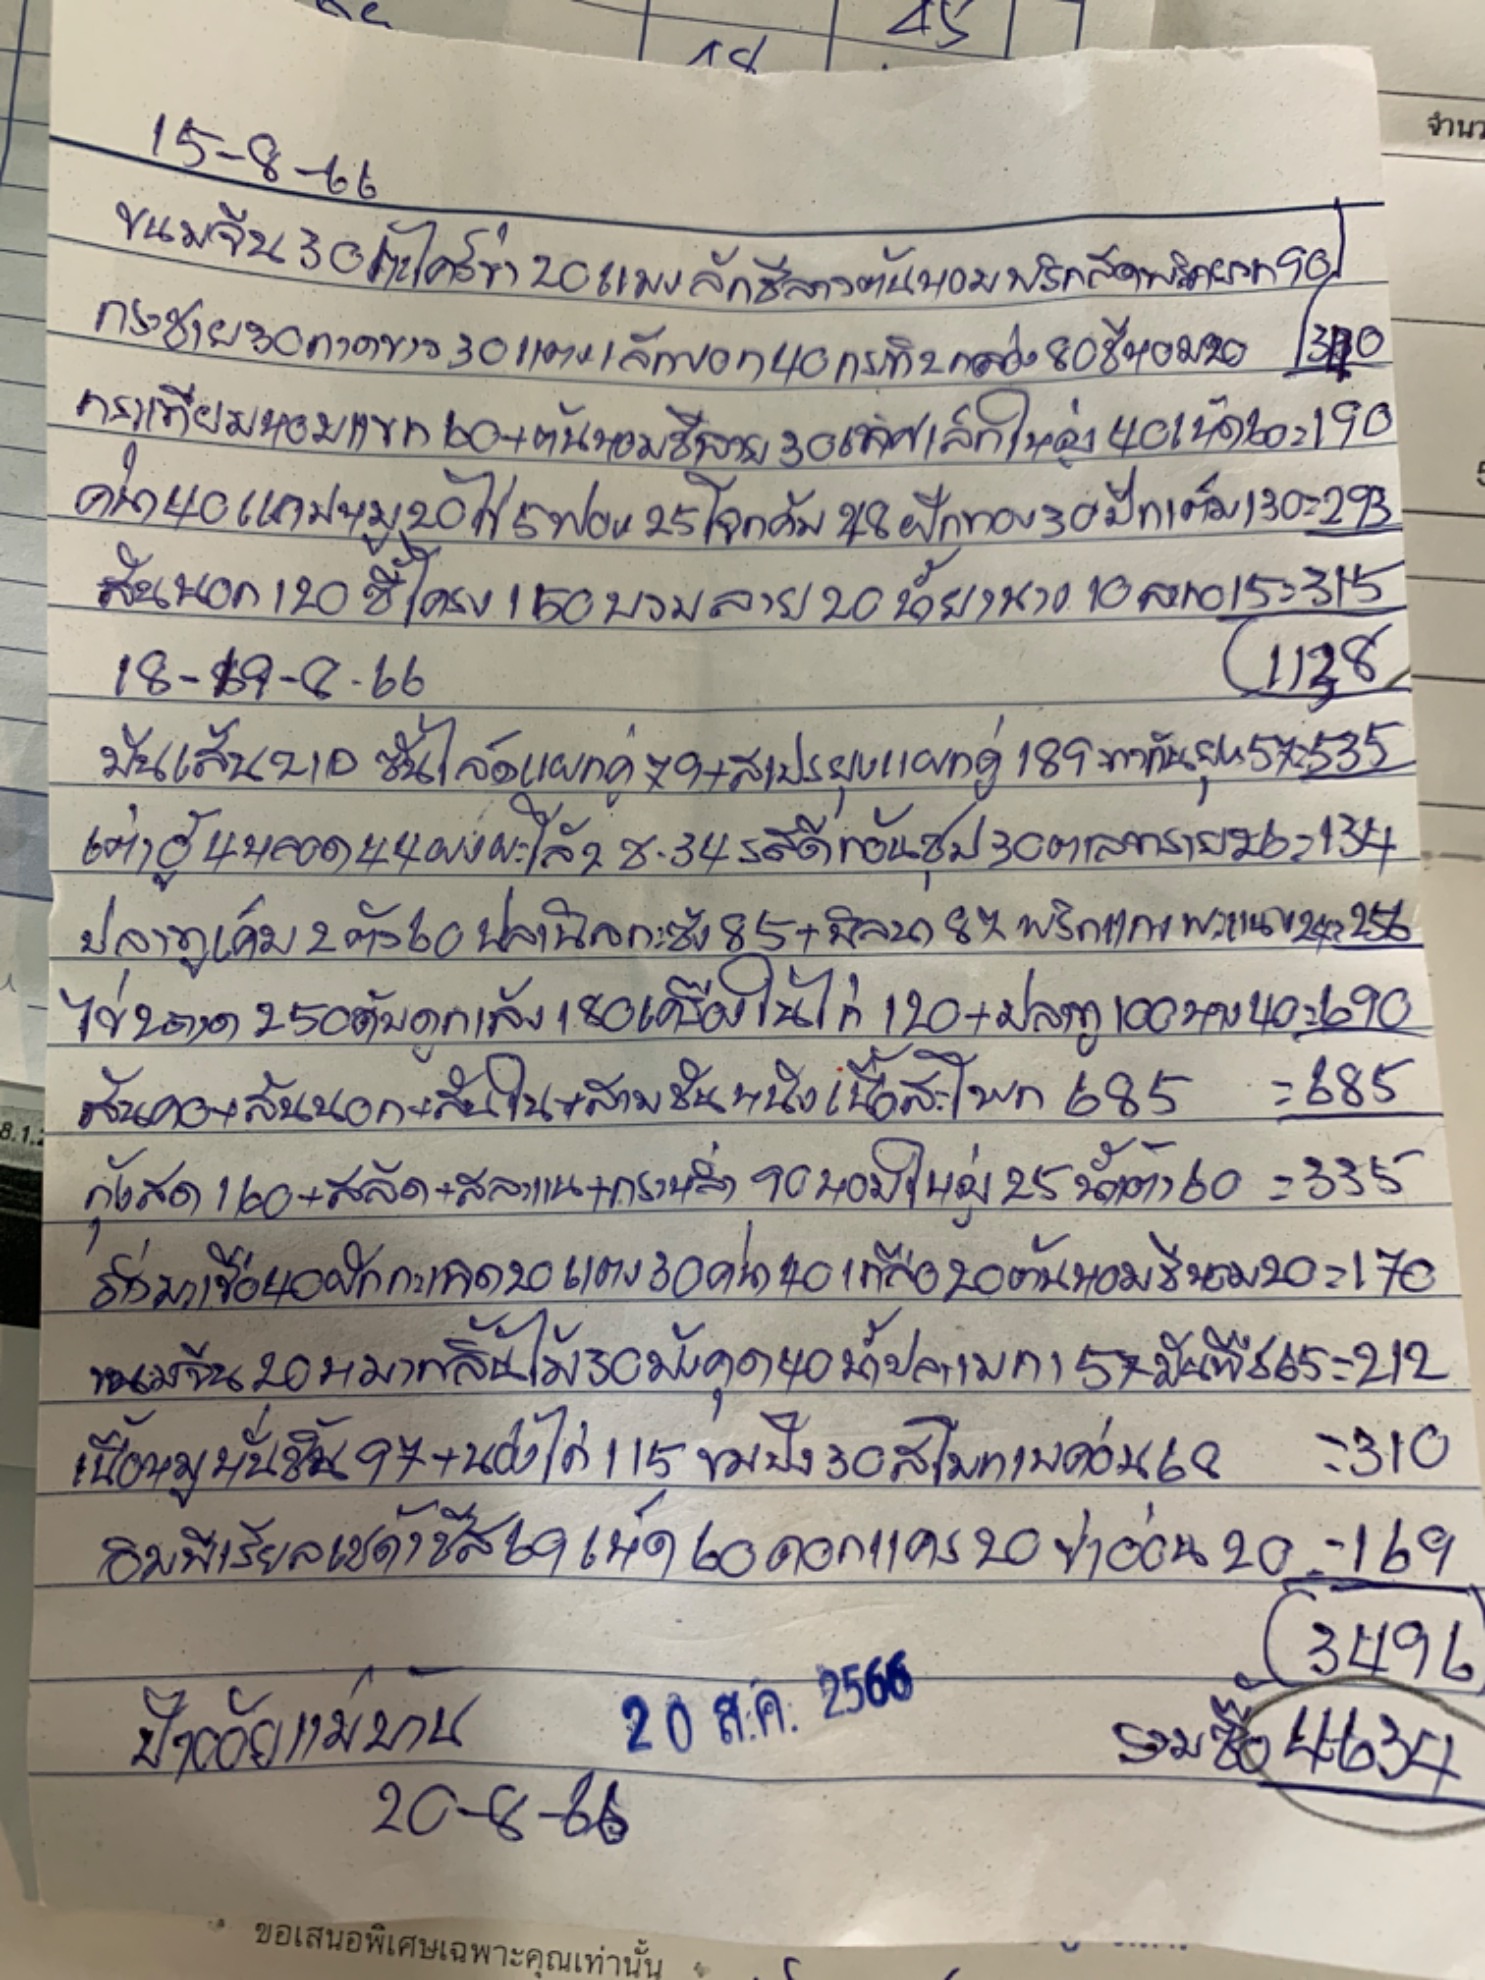 18 45
จำนว
15-8-66
ขนมจีน 30 ตะไคร้ข่า 20 แมงลักชีลาวต้นหอมพริกสด 90
กระชาย 30 ถาดขาว 30 แตงเล็ก 40 กะทิ 2 กล่อง 80 ชีหอม 20 340
กระเทียมหอมแขก 60 + ต้นหอมชีลาย 30 เล็กใหญ่ 40 เห็ด 60 = 190
คน้า 40 แคปหมู 20 ไข่ 5 ฟอง 25 โจ๊กคัม 48 ฟักทอง 30 ปีกเต็ม 130 = 293
สันนอก 120 ซี่โครง 150 บวบลาย 20 น้ำย่านาง 10 15 = 315
18-19-8-66 1138
มันเส้น 210 แพกคู่ 79 + สเปรยุงแผกคู่ 189 ทากันยุง 57 = 535
เต้าฮู้ 4 หลอด 44 ผงผะโล้ 2 ซ. 34 รสดีก้อนซุป 30 ตาลทราย 26 = 134
ปลาทูเค็ม 2 ตัว 60 ปลานิลกะซัง 85 + 87 พริกแกงพะแนง 24 = 256
ไข่ 2 ถาด 250 ตับดูก 180 เครื่องในไก่ 120 + ปลาทู 100 40 = 690
สันคอ + สันนอก + สันใน + สามชั้นหนัง เนื้อสะโพก 685 = 685
กุ้งสด 160 + สลัด + สลาแน + กราหล่ำ 90 หอมใหญ่ 25 น้ำเต้า 60 = 335
มาเขือ 40 ผักกะเฉด 20 แตง 30 คน้า 40 เกลือ 20 ต้นหอมชีหอม 20 = 170
ขนมจีน 20 หมากลิ้นไม้ 30 มังคุด 40 น้ำปลาเมกา 57 มันพืช 65 = 212
เนื้อหมูหั่นชิ้น 97 + น่องไก่ 115 ขมปัง 30 สโมกเบค่อน 68 = 310
อิมพีเรียลเชด้าชีส 69 เห็ด 60 ดอกแคร 20 ข่าอ่อน 20 = 169
3496
ป้าอ้วยแม่บ้าน 20 ส.ค. 2566 รวมซื้อ 4634
20-8-66
ขอเสนอพิเศษเฉพาะคุณเท่านั้น